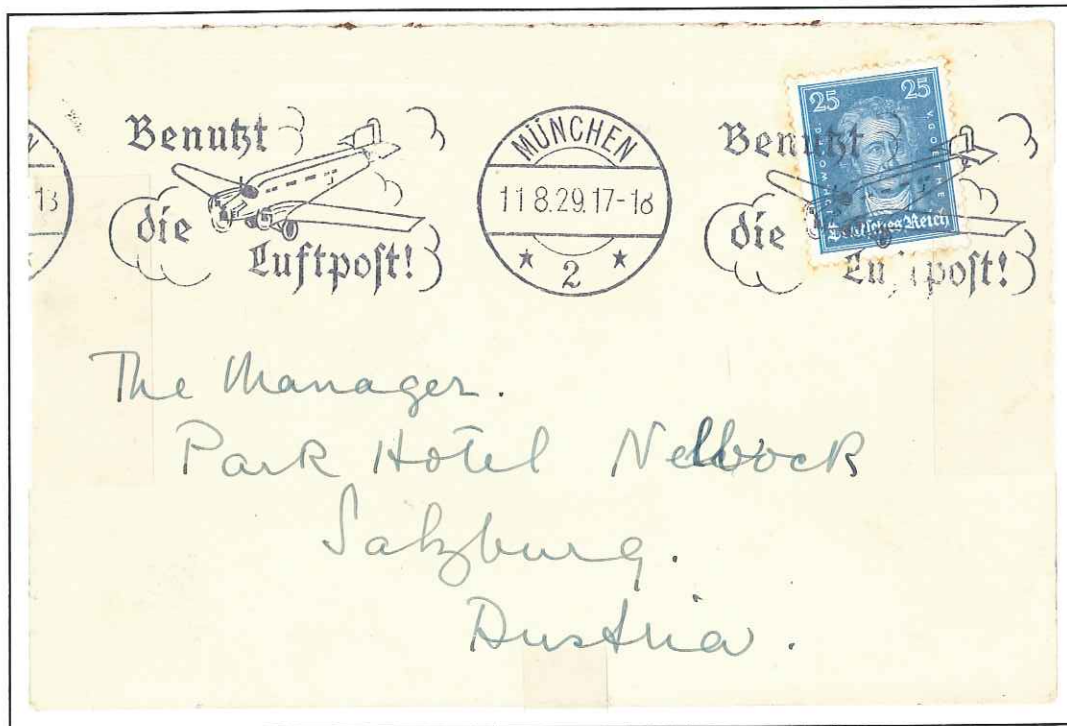 Benutzt
die
Luftpost!
MÜNCHEN
11.8.29.17-18
* 2 *
Benutzt
die
Luftpost!
25 25
Deutsches Reich
The Manager.
Park Hotel Nelböck
Salzburg.
Austria.